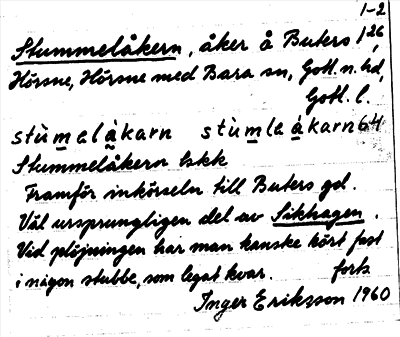 1-2
Stummelåkern, åker å Buters 1²⁶,
Hörsne, Hörsne med Bara sn, Gotl. n. hd,
Gotl. l.
stùm̲elå̲karn stùm̲leá̲karn 64
Stummelåkern tskk
Framför inkörseln till Buters gd.
Väl ursprungligen del av Sikhagen.
Vid plöjningen har man kanske kört fast
i någon stubbe, som legat kvar. forts
Inger Eriksson 1960